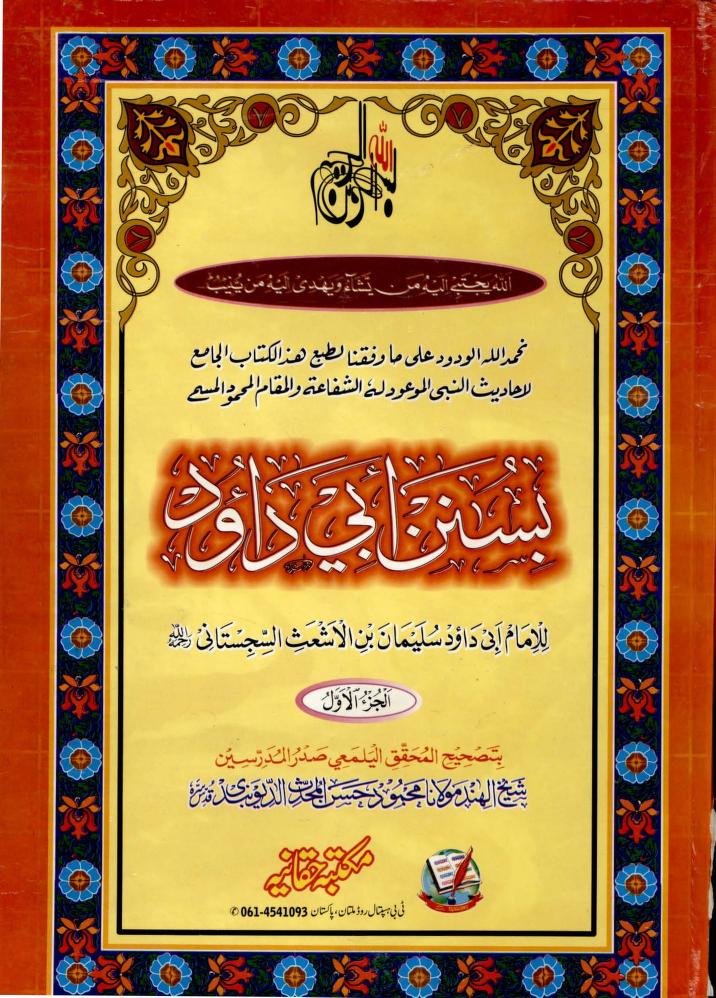 بسم الله الرحمن الرحيم
اَللّٰهُ يَجْتَبِىْٓ اِلَيْهِ مَنْ يَّشَآءُ وَيَهْدِىْٓ اِلَيْهِ مَنْ يُّنِيْبُ
نحمد الله الودود على ما وفقنا لطبع هذا الكتاب الجامع
لاحاديث النبى الموعود له الشفاعة والمقام المحمود المسمى
بِسُنَنِ أَبِي دَاوُد
لِلْاِمَامْ اَبِىْ دَاوُدْ سُلَيْمَانَ بْنِ الْاَشْعَثِ السِّجِسْتَانِىْ رحمه الله
اَلْجُزْءُ الْاَوَّلُ
بِتَصْحِيْحِ الْمُحَقِّقِ الْيَلْمَعِي صَدْرُ الْمُدَرِّسِيْن
شَيْخُ الْهِنْد مَوْلَانَا مَحْمُوْد حَسَن الْمُحَدِّث الدِّيُوبَنْدِى قدس سره
مکتبہ حقانیہ
ٹی بی ہسپتال روڈ ملتان، پاکستان 061-4541093 ✆